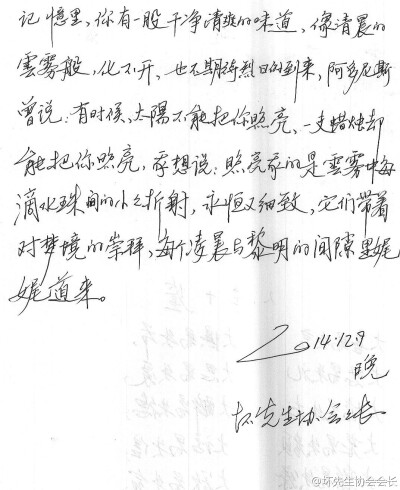 记憶里，你有一股干净清爽的味道，像清晨的
雲雾般，化不开，也不期待烈日的到来，阿多尼斯
曾说：有时候，太陽不能把你照亮，一支蜡烛却
能把你照亮，我想说：照亮我的是雲雾中每
滴水珠间的小小折射，永恒又细致，它们带着
对梦境的崇拜，每个凌晨与黎明的间隙里娓
娓道来。
2014.12.9
晚
坏先生协会会长
@坏先生协会会长